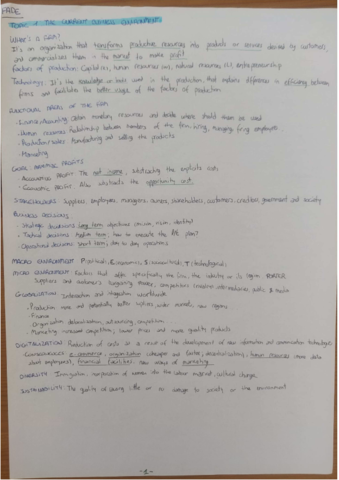 FADE
TOPIC 1: THE CURRENT BUSINESS ENVIRONMENT
WHAT'S A FIRM?
It's an organization that transforms productive resources into products or services desired by customers,
and commercialises them in the market to make profit
Factors of production: Capital (K), human resources and, natural resources (L), entrepreneurship
Technology: It's the knowledge and tools used in the production, that explains differences in efficiency between
firms and facilitates the better usage of the factors of production.
FUNCTIONAL AREAS OF THE FIRM
- Finance/Accounting Obtain monetary resources and decide where should them be used
- Human resources Relationship between members of the firm, hiring, managing, firing employees
- Production/Sales Manufacturing and selling the products
- Marketing
GOAL: AVERAGE PROFITS
- Accounting PROFIT The net income, subtracting the explicit costs
- Economic PROFIT Also subtracts the opportunity cost
STAKEHOLDERS Suppliers, employees, managers, owners, shareholders, customers, creditors, government and society
BUSINESS DECISIONS
- Strategic decisions Long term objectives (mission, vision, identity)
- Tactical decisions Medium term, how to execute the plan?
- Operational decisions Short term, day to day operations
MACRO ENVIRONMENT P (political), E (economic), S (sociocultural), T (technological)
MICRO ENVIRONMENT Factors that affect specifically the firm, the industry or its region PORTER
Suppliers and customer's bargaining power, competitors, investors, intermediaries, public
GLOBALISATION Interaction and integration worldwide
- Production more and potentially better options, wider markets, new regions
- Finance
- Organisation delocalisation, outsourcing, competition
- Marketing increased competition, lower prices and more quality products
DIGITALISATION: Production of as a result of the development of new information and communication technologies
- Consequences e-commerce, organization (cheaper and faster, decentralisation), human resources (more data
about employees), financial facilities, new ways of marketing
DIVERSITY: Immigration, incorporation of women into the labour market, cultural changes
SUSTAINABILITY: The quality of causing little or no damage to society or the environment
-1-